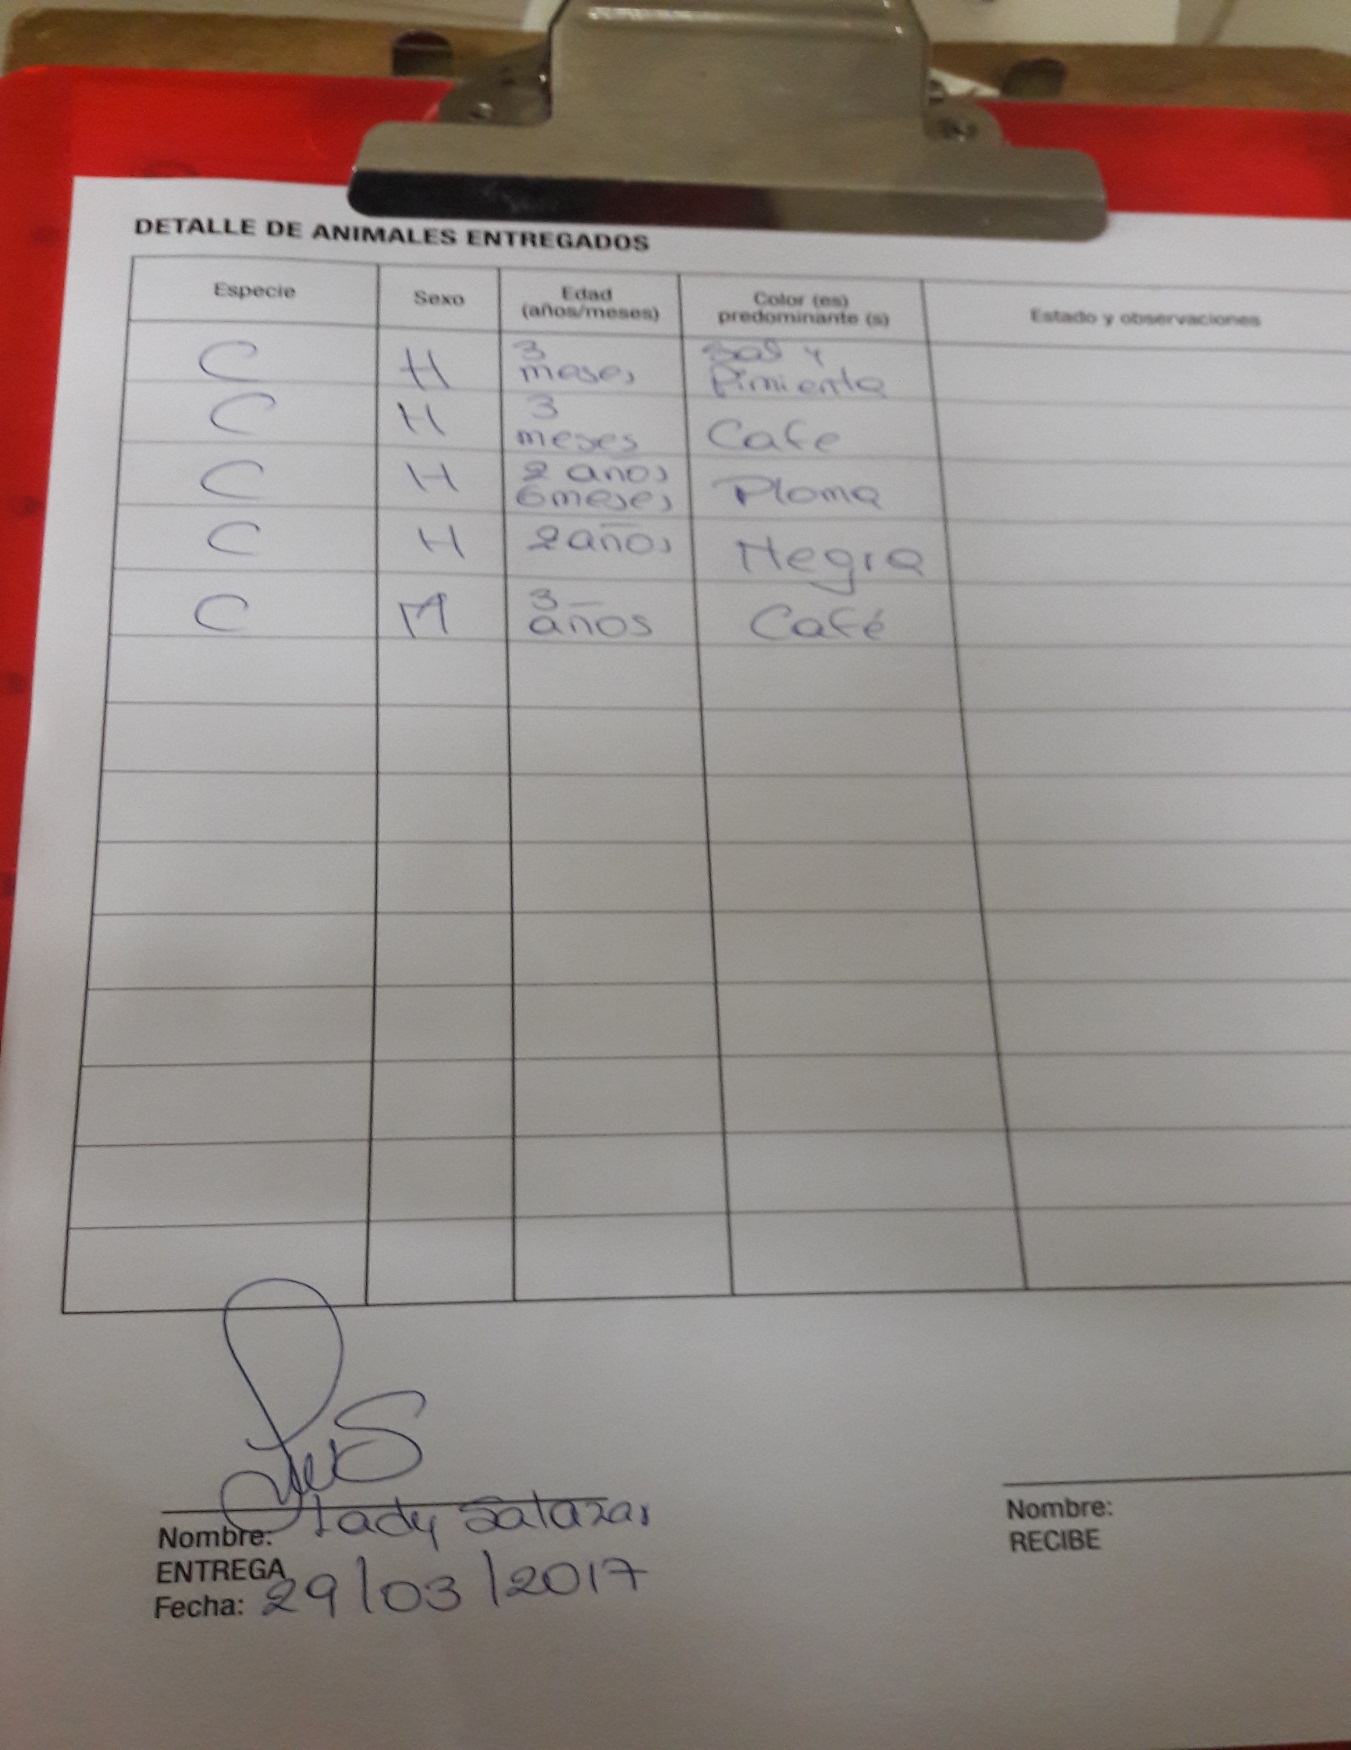 DETALLE DE ANIMALES ENTREGADOS
Especie Sexo Edad (años/meses) Color (es) predominante (s) Estado y observaciones
C H 3 meses Sal y Pimienta
C H 3 meses Cafe
C H 2 años 6 meses Ploma
C H 2 años Negra
C M 3 años Café
Nombre: Lady Salazar
ENTREGA
Fecha: 29/03/2017
Nombre:
RECIBE